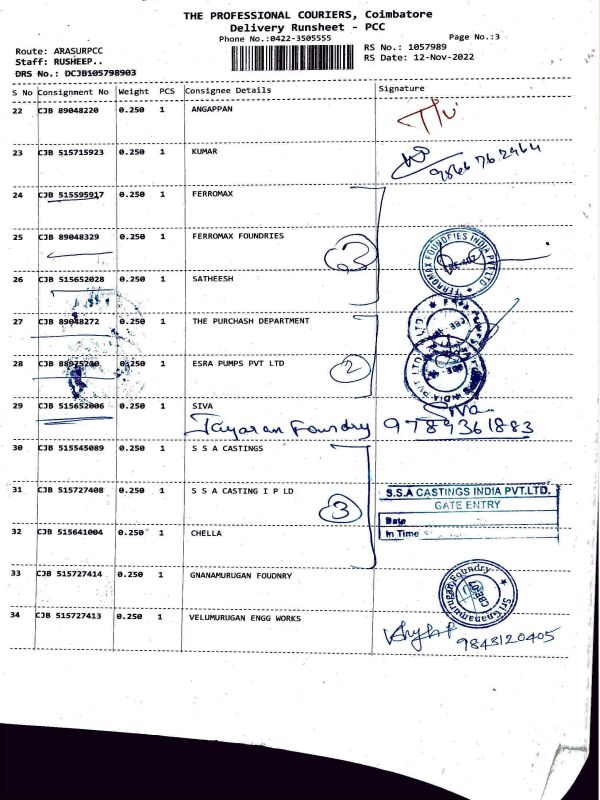 THE PROFESSIONAL COURIERS, Coimbatore
Delivery Runsheet - PCC
Phone No.:0422-3505555
Page No.:3
Route: ARASURPCC
RS No.: 1057989
Staff: RUSHEEP..
RS Date: 12-Nov-2022
DRS No.: DCJB105798903
S No Consignment No Weight PCS Consignee Details Signature
22 CJB 89048220 0.250 1 ANGAPPAN
23 CJB 515715923 0.250 1 KUMAR
9866762964
24 CJB 515595917 0.250 1 FERROMAX
25 CJB 89048329 0.250 1 FERROMAX FOUNDRIES
3
FERROMAX FOUNDRIES INDIA PVT LTD
26 CJB 515652028 0.250 1 SATHEESH
27 CJB 89048272 0.250 1 THE PURCHASH DEPARTMENT
28 CJB 88975200 0.250 1 ESRA PUMPS PVT LTD
2
INDIA PVT LTD
29 CJB 515652006 0.250 1 SIVA
Siva
Jayaran Foundry 9789361883
30 CJB 515545089 0.250 1 S S A CASTINGS
31 CJB 515727408 0.250 1 S S A CASTING I P LD
3
S.S.A CASTINGS INDIA PVT.LTD.
GATE ENTRY
Date
In Time
32 CJB 515641004 0.250 1 CHELLA
33 CJB 515727414 0.250 1 GNANAMURUGAN FOUDNRY
Sri Gnanamurugan Foundry
CBE-07
34 CJB 515727413 0.250 1 VELUMURUGAN ENGG WORKS
9843120405